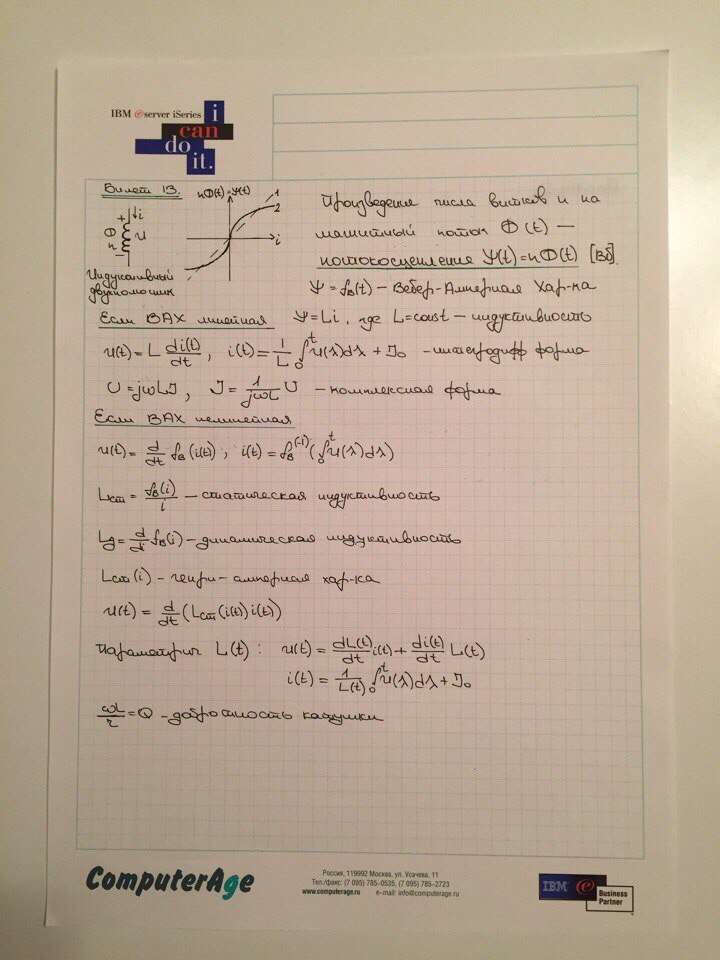 IBM eserver iSeries
i
can
do
it.
Билет 13.
nФ(t)=Ψ(t)
1
2
i
+
i
Ф
n
U
−
Индуктивный
двухполюсник
Произведение числа витков n на
магнитный поток Ф(t) —
потокосцепление Ψ(t)=nФ(t) [Вб].
Ψ=fв(t) – Вебер-Амперная Хар-ка
Если ВАХ линейная Ψ=Li, где L=const – индуктивность
u(t)=L di(t)/dt, i(t)=1/L ∫₀ᵗ u(λ)dλ + J₀ – интегродифф форма
U=jωLJ, J=1/jωL U – комплексная форма
Если ВАХ нелинейная
u(t)= d/dt fв(i(t)), i(t)=fв⁽⁻¹⁾(∫₀ᵗ u(λ)dλ)
Lст= fв(i)/i – статическая индуктивность
Lд= d/di fв(i) – динамическая индуктивность
Lст(i) – генри-амперная хар-ка
u(t)= d/dt (Lст(i(t))i(t))
Параметрич L(t): u(t)= dL(t)/dt i(t)+ di(t)/dt L(t)
i(t)= 1/L(t) ∫₀ᵗ u(λ)dλ + J₀
ωL/r=Q – добротность катушки
ComputerAge
Россия, 119992 Москва, ул. Усачева, 11
Тел./факс: (7 095) 785–0535, (7 095) 785–2723
www.computerage.ru e-mail: info@computerage.ru
IBM e
Business
Partner